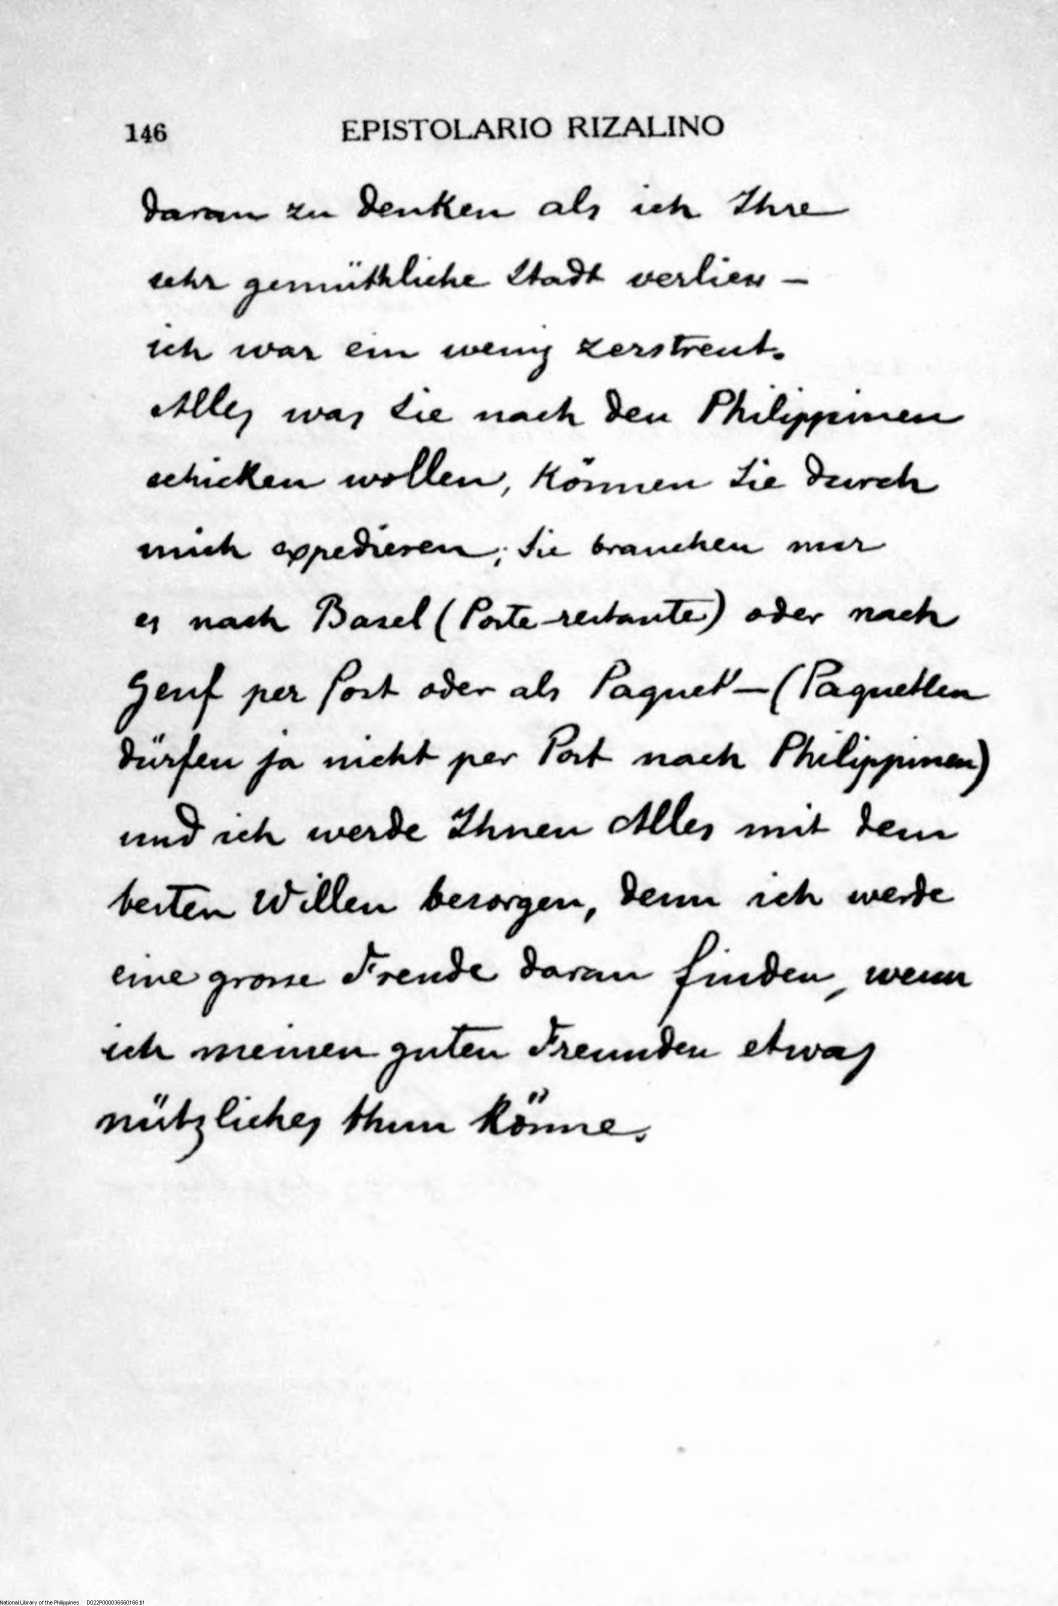 146 EPISTOLARIO RIZALINO
daran zu denken als ich Ihre
sehr gemüthliche Stadt verliess —
ich war ein wenig zerstreut.
Alles was Sie nach den Philippinen
schicken wollen, können Sie durch
mich expedieren; Sie brauchen nur
es nach Basel (Poste-restante) oder nach
Genf per Post oder als Paquet — (Paquetten
dürfen ja nicht per Post nach Philippinen)
und ich werde Ihnen Alles mit dem
besten Willen besorgen, denn ich werde
eine grosse Freude daran finden, wenn
ich meinen guten Freunden etwas
nützliches thun könne.
National Library of the Philippines